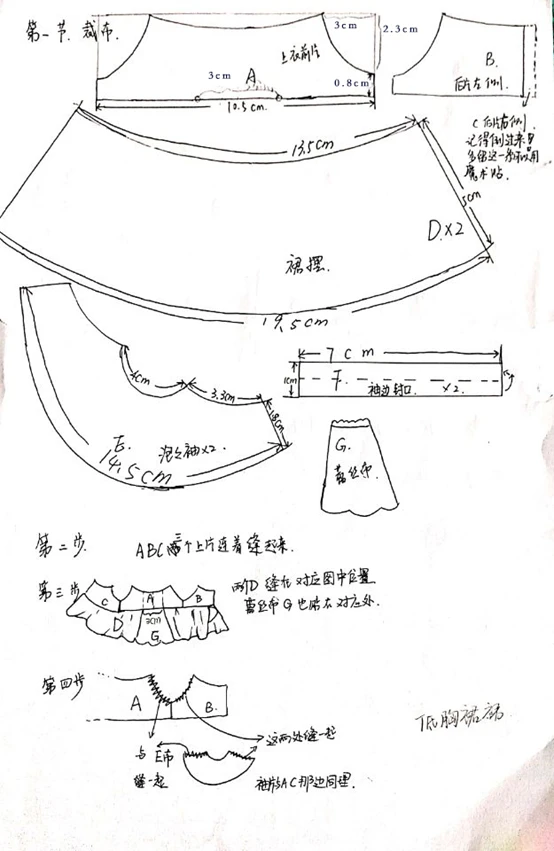 第一节.裁布.
3cm
2.3cm
上衣前片
A
3cm
0.8cm
10.5cm.
B.
后片左侧.
C 后片右侧
记得倒过来
多留这一条
魔术贴.
13.5cm
5cm
D.×2
裙摆.
19.5cm
7cm
1cm
F.
袖边封口.
×2.
4cm
3.3cm
1.8cm
E.
泡泡袖×2.
14.5cm
G.
蕾丝布.
第二步.
ABC三个上片连着缝起来.
第三步
C
A
B
D
3cm
G
两个D 缝在对应图中位置
蕾丝布G也贴在对应处.
第四步
A
B.
与E布
缝一起
这两处缝一起
袖片与AC那边同理.
低胸裙